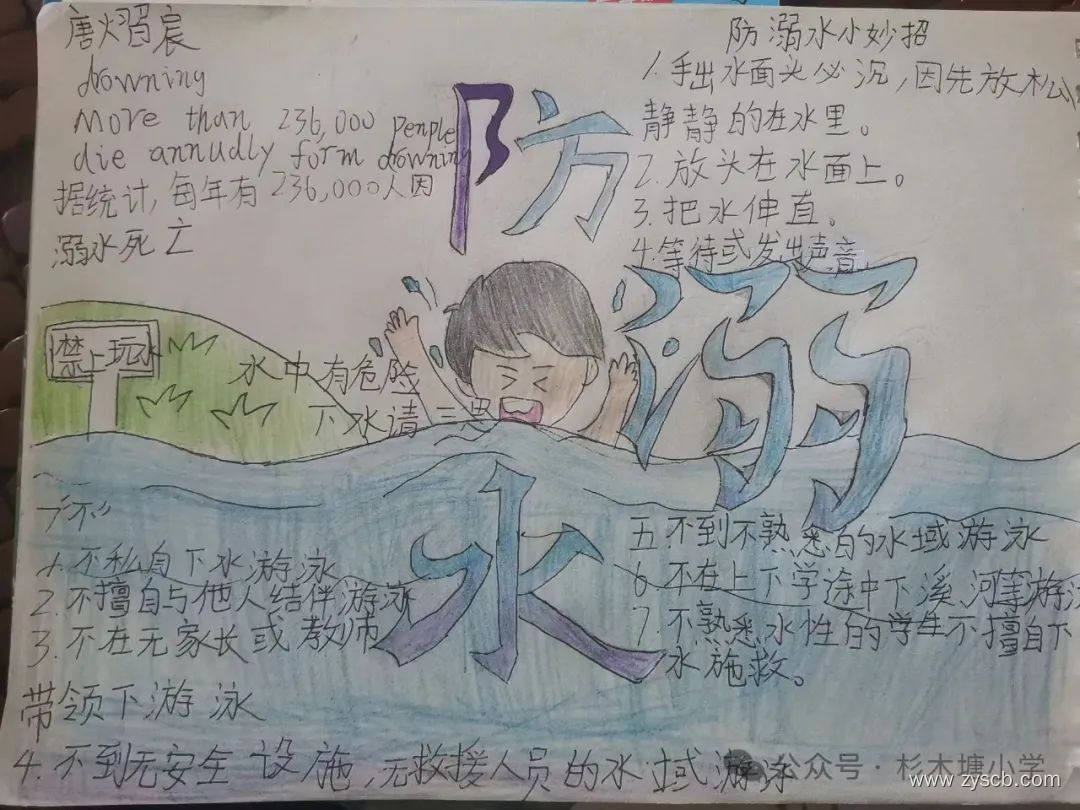 唐熠宸
drowning
More than 236,000 penple
die annudly form drowning
据统计,每年有236,000人因
溺水死亡
防溺水
防溺水小妙招
1.手出水面头必沉,因先放松
静静的在水里。
2.放头在水面上。
3.把水伸直。
4.等待或发出声音
禁止玩水
水中有危险
下水请三思
1.不私自下水游泳
2.不擅自与他人结伴游泳
3.不在无家长或教师
带领下游泳
4.不到无安全设施,无救援人员的水域游泳
五不到不熟悉的水域游泳
6.不在上下学途中下溪、河等游泳
7.不熟悉水性的学生不擅自下
水施救。
公众号·杉木塘小学
www.zyscb.com